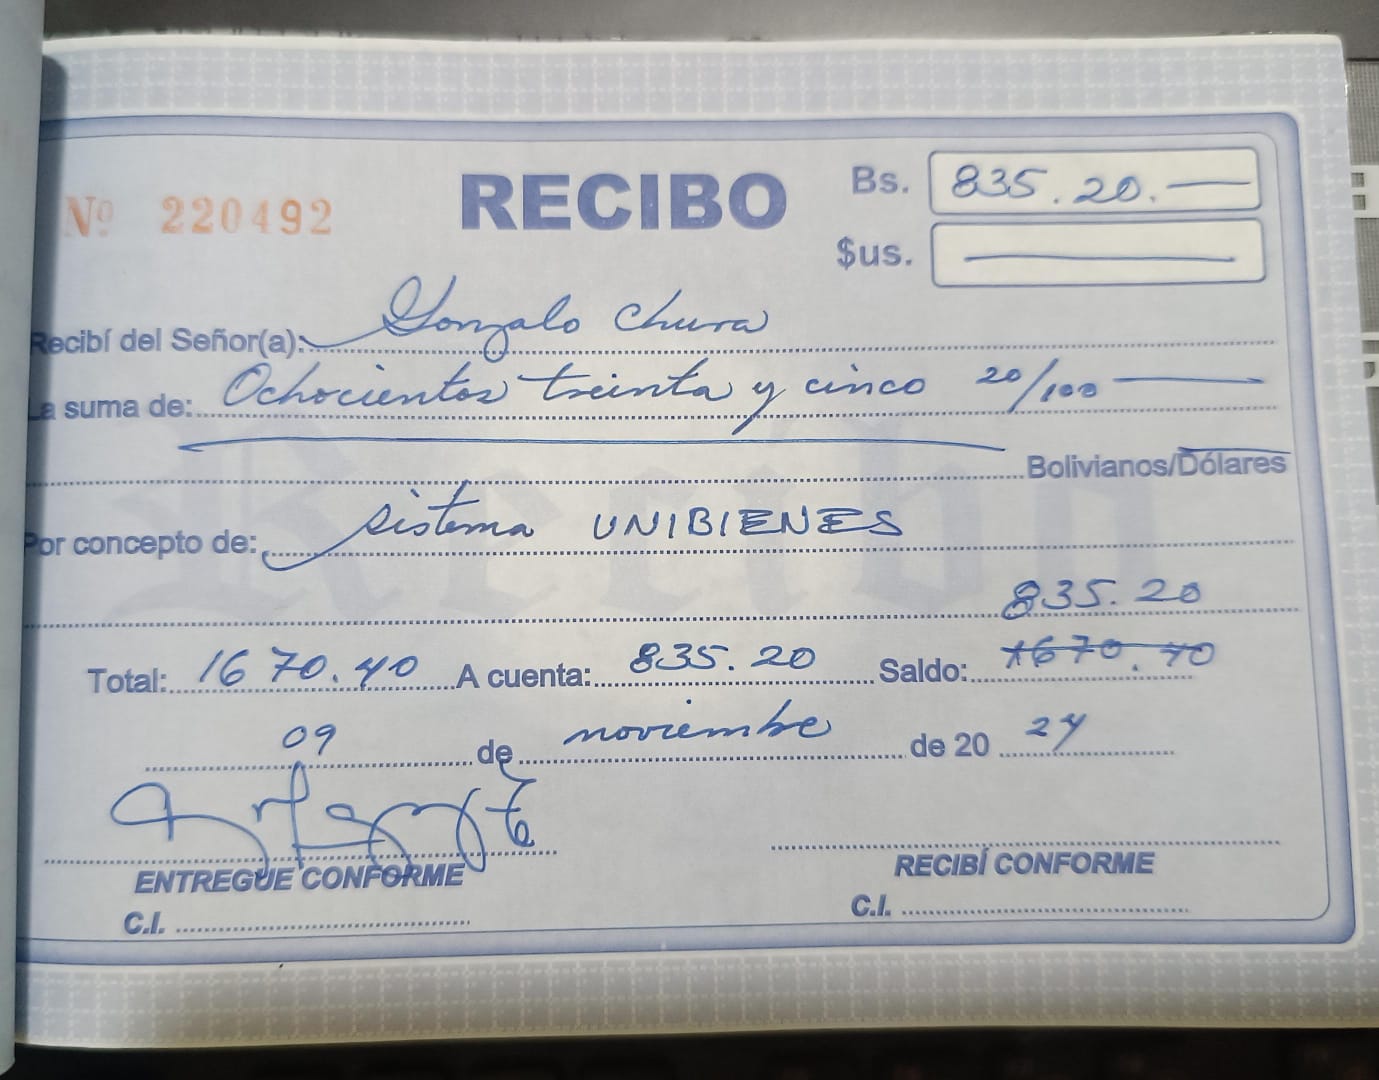 Nº 220492
RECIBO
Bs. 835.20.
$us.
Recibí del Señor(a): Gonzalo Chura
La suma de: Ochocientos treinta y cinco 20/100
Bolivianos/Dólares
Por concepto de: sistema UNIBIENES
835.20
Total: 1670.40 A cuenta: 835.20 Saldo: 1670.40
09 de noviembre de 20 24
ENTREGUE CONFORME
RECIBÍ CONFORME
C.I.
C.I.
Recibo